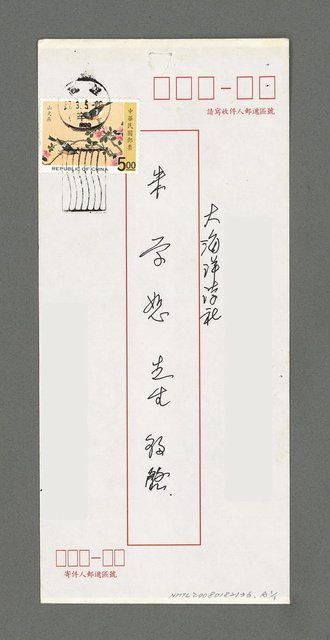 請寫收件人郵遞區號
大海洋詩社
朱學恕 先生 啟
山光鳥
中華民國郵票
5.00
REPUBLIC OF CHINA
寄件人郵遞區號
NMTL20080182126